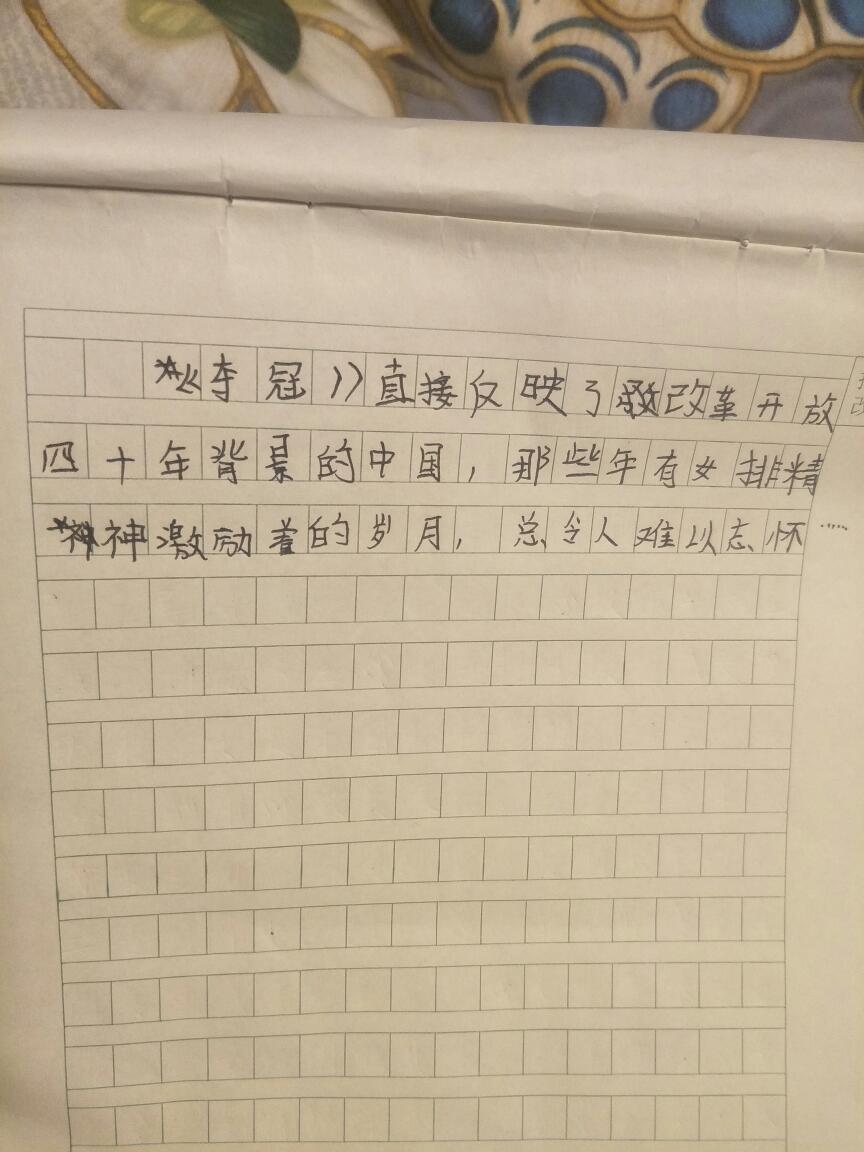 《夺冠》直接反映了改革开放
四十年背景的中国，那些年有女排精
神激励着的岁月，总令人难以忘怀……